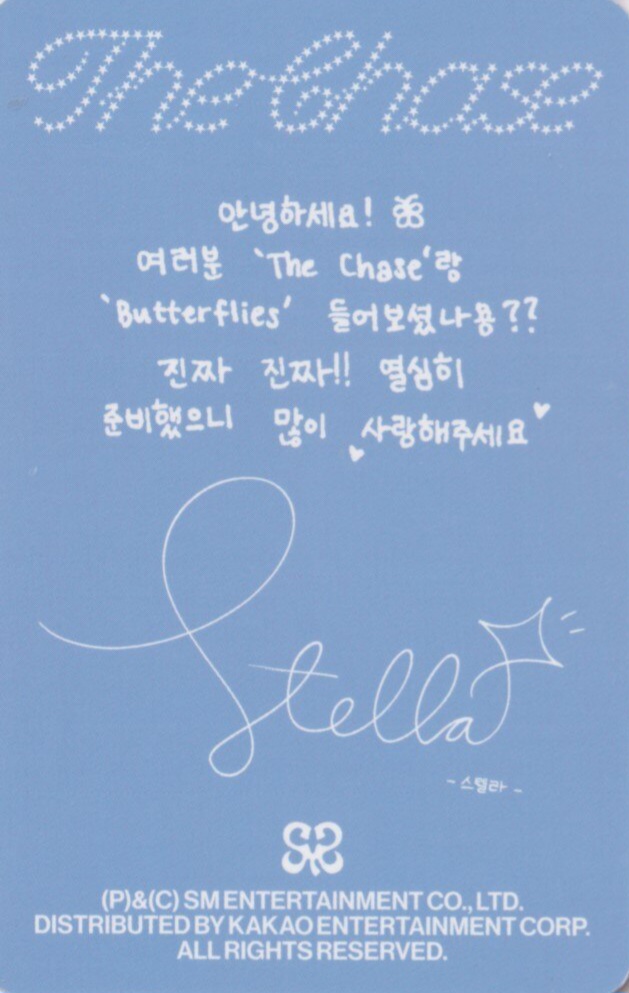 The Chase
안녕하세요!
여러분 'The Chase'랑
'Butterflies' 들어보셨나용??
진짜 진짜!! 열심히
준비했으니 많이 사랑해주세요
Stella
-스텔라-
(P)&(C) SM ENTERTAINMENT CO., LTD.
DISTRIBUTED BY KAKAO ENTERTAINMENT CORP.
ALL RIGHTS RESERVED.